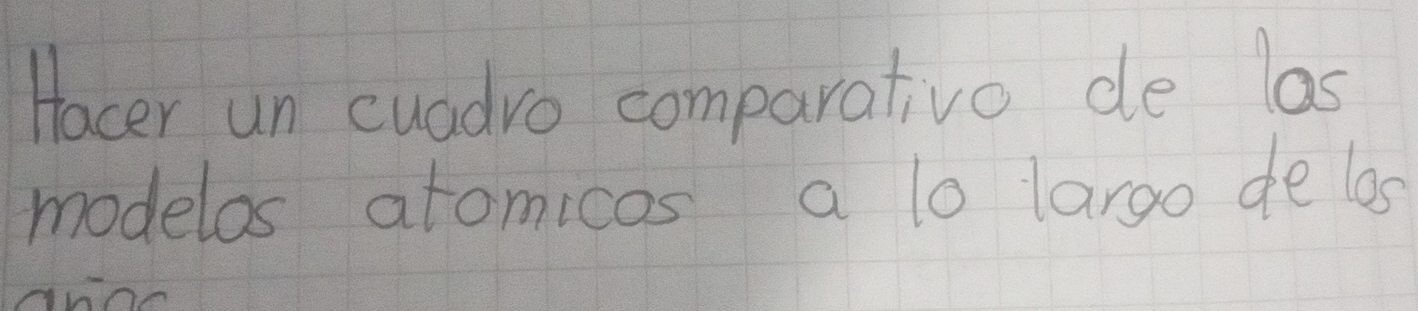 Hacer un cuadro comparativo de los
modelos atomicos a lo largo de los
años